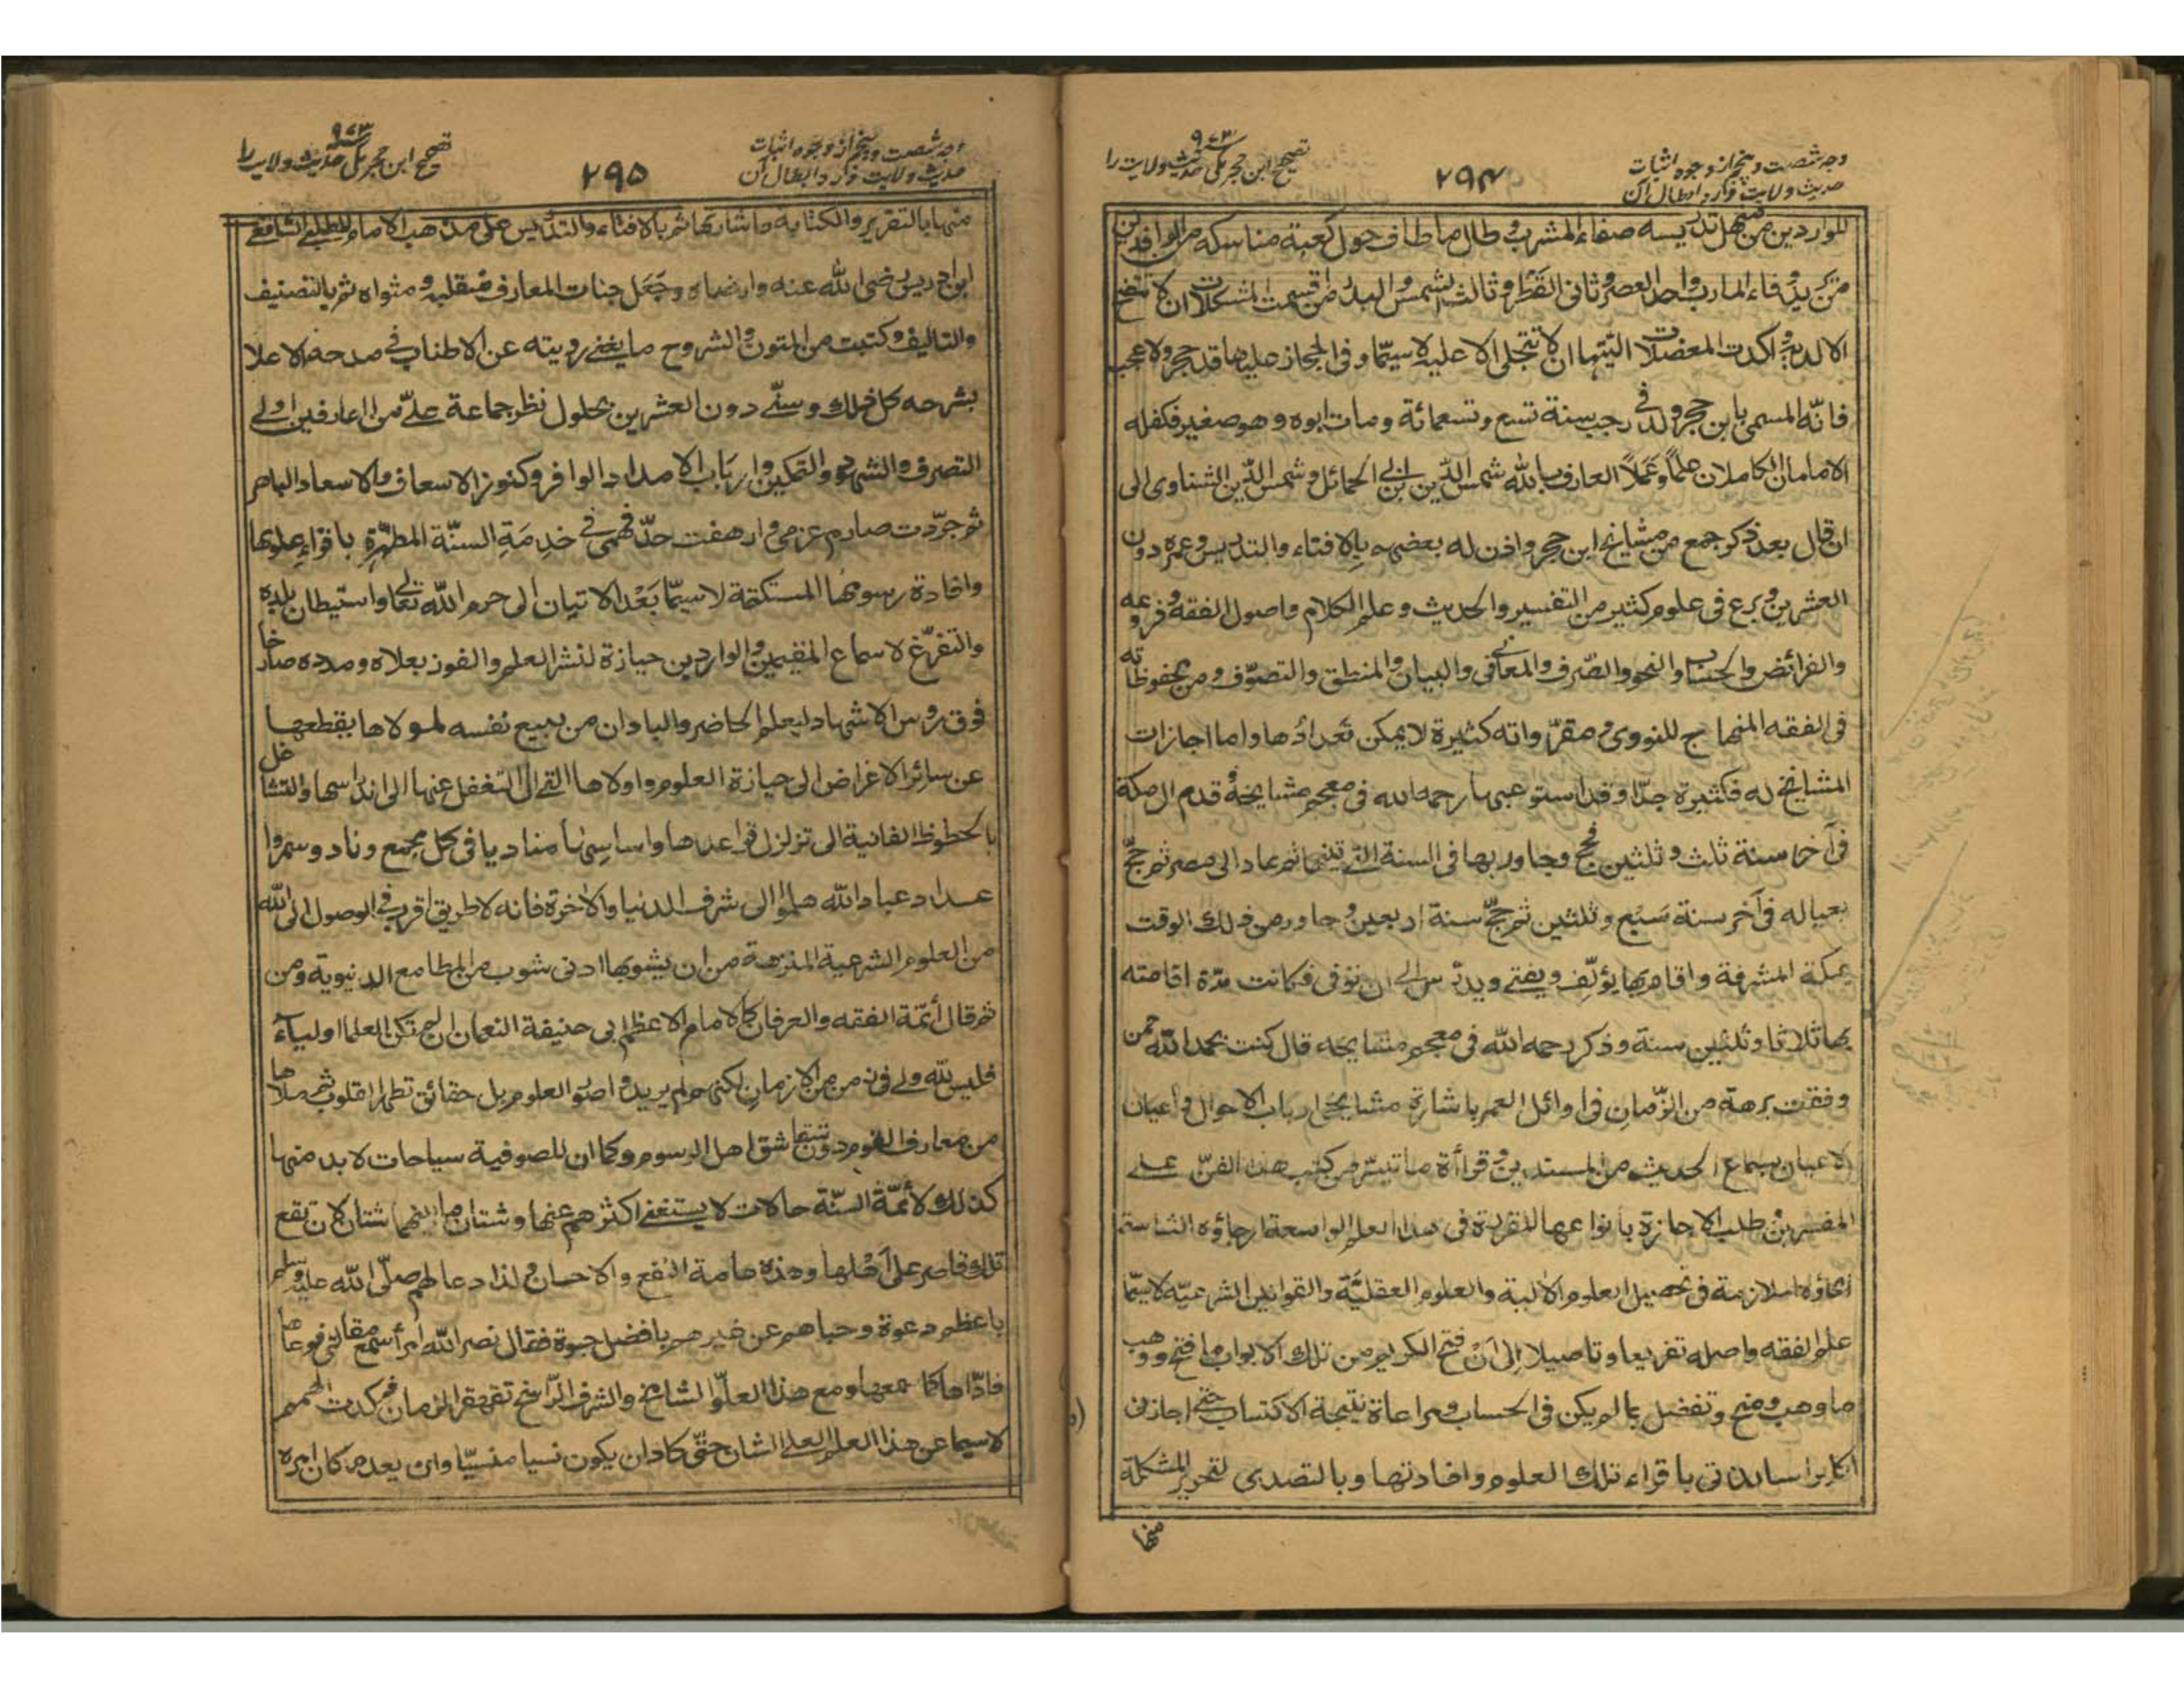 وجه شصت و پنجم از وجوه اثبات
حدیث ولایت و رد ابطال آن
۲۹۴
۹۷۳
تصحیح ابن حجر مکی حدیث ولایت را
للواردین من منهل تدریسه صفاء المشرب و طال ما طاف حول کعبة مناسکه من الوافدین
من یرید وفاء المارب واحد العصر و ثانی القطر و ثالث الشمس و البدر من اقسمت المشکلات ان لا تتضح
الا لدیه و اکدت المعضلات الیتها ان لا تتجلی الا علیه لا سیما و فی الحجاز علیها قد حجر ولا عجب
فانه المسمی بابن حجر ولد فی رجب سنة تسع و تسعمائة و مات ابوه و هو صغیر فکفله
الامامان الکاملان علماً و عَمَلاً العارف بالله شمس الدین بن ابی الحمائل و شمس الدین الشناوی الی
ان قال بعد ذکر جمع من مشایخ ابن حجر و اذن له بعضهم بالافتاء و التدریس و عمره دون
العشرین و برع فی علوم کثیر من التفسیر و الحدیث و علم الکلام و اصول الفقه و فروعه
و الفرائض و الحساب و النحو و الصرف و المعانی و البیان و المنطق و التصوّف و من محفوظاته
فی الفقه المنهاج للنووی و مقرّواته کثیرة لا یمکن تعدادها و اما اجازات
المشایخ له فکثیرة جدا و قد استوعبها رحمه الله فی معجم مشایخه قدم الی مکة
فی آخر سنة ثلث و ثلثین فحج و جاور بها فی السنة التی تلیها ثم عاد الی مصر ثم حجّ
بعیاله فی آخر سنة سَبْع و ثلثین ثم حجّ سنة اربعین و جاور من ذلک الوقت
بمکة المشرفة و اقام بها یؤلّف و یفتی و یدرّس الی ان توفی فکانت مدّة اقامته
بها ثلاثا و ثلثین سنة و ذکر رحمه الله فی معجم مشایخه قال کنت بحمد الله ممن
وفقت برهة من الزّمان فی اوائل العمر باشارة مشایخی ارباب الاحوال و اعیان
الاعیان بسماع الحدیث من المسندین و قراءة ما تیسّر من کتب هذا الفنّ علی
المفسرین و طلب الاجازة بانواعها المقررة فی هذا العلم الواسعة ارجاؤه الشاسعة
انحاؤه الملازمة فی تحصیل العلوم الآلیة و العلوم العقلیَّة و القوانین الشرعیّة لا سیّما
علم الفقه و اصله تفریعا و تاصیلا الی ان فتح الکریم من تلک الابواب ما فتح و وهب
ما وهب و منح و تفضل بما لم یکن فی الحساب و مراعاة نتیجة الاکتساب حتی اجازنی
اکابر اساتذتی باقراء تلک العلوم و افادتها و بالتصدی لتحریر المشکلة
منها
وجه شصت و پنجم از وجوه اثبات
حدیث ولایت و رد ابطال آن
۲۹۵
۹۷۳
تصحیح ابن حجر مکی حدیث ولایت را
منها بالتقریر و الکتابة و اشارتها ثم بالافتاء و التدریس علی مذهب الامام المطلبی الشافعی
ابن ادریس رضی الله عنه و ارضاه و جَعَل جنات المعارف متقلبه و مثواه ثم بالتصنیف
و التالیف و کتبت من المتون و الشروح ما یغنی رویته عن الاطناب فی مدحه و الاعلا
بشرحه کل ذلک و سنّی دون العشرین بحلول نظر جماعة علیّ من العارفین اولی
التصرف و الشهود و التمکین و ارباب الامداد الوافر و کنوز الاسعاف و الاسعاد الباهر
ثم جرّدت صارم عزمی و ارهفت حدّ فهمی فی خدمَةِ السنّة المطهّرة باقراء علومها
و افادة رسومها المستکتمة لا سیّما بَعْد الاتیان الی حرم الله تعالی و استیطان بلده
و التفرّغ لاسماع المقیمین و الواردین حیازة لنشر العلم و الفوز بعلاه و مدده صارخا
فوق رؤس الاشهاد لیعلم الحاضر و الباد ان من یبیع نفسه لمولاها بقطعها
عن سائر الاغراض الی حیازة العلوم و اولاها التی ال التغفل عنها الی اندراسها و التشاغل
بالحظوظ الفانیة الی تزلزل قواعدها و اساسها منادیا فی کل مجمع و ناد و سمروا
عداد عباد الله هلمّوا الی شرف الدنیا و الآخرة فانه لا طریق اقرب فی الوصول الی الله
من العلوم الشرعیة المنزهة من ان یشوبها ادنی شوب من المطامع الدنیویة و من
ثم قال أئمّة الفقه و العرفان کالامام الاعظم ابی حنیفة النعمان ان لم تکن العلما اولیاء
فلیس لله ولی فی زمن من الازمان لکنهم لم یریدوا صور العلوم بل حقائق تطهر القلوب ثم ملاها
من معارف القوم دون شقاشق اهل الرسوم و کما ان للصوفیة سیاحات لا بد منها
کذلک لأئمّة السنّة حالات لا یستغنی اکثرهم عنها و شتان ما بینهما شتان لان نفع
تلک قاصر علی اهلها و هذه عامة النفع و الاحسان و لذا دعا لهم صلّی الله علیه و سلم
باعظم دعوة و حباهم عن غیرهم بافضل حبوة فقال نضر الله امرأ سمع مقالتی فوعاها
فادّاها کما سمعها و مع هذا العلوّ الشامخ و الشرف الرّاسخ تقهقر الزمان فرکدت الهمم
لا سیما عن هذا العلم العلی الشان حتّی کاد ان یکون نسیا منسیّا و ان یعد من کان امره